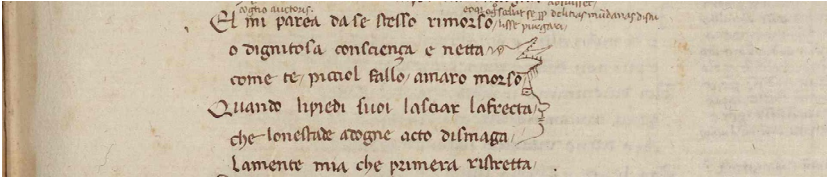 cogito auctoris.
El mi parea da se stesso rimorso
o dignitosa conscienza e netta
come te picciol fallo amaro morso
Quando lipiedi suoi lasciar lafrecta
che lonestade adogne acto dismaga
lamente mia che primera ristretta